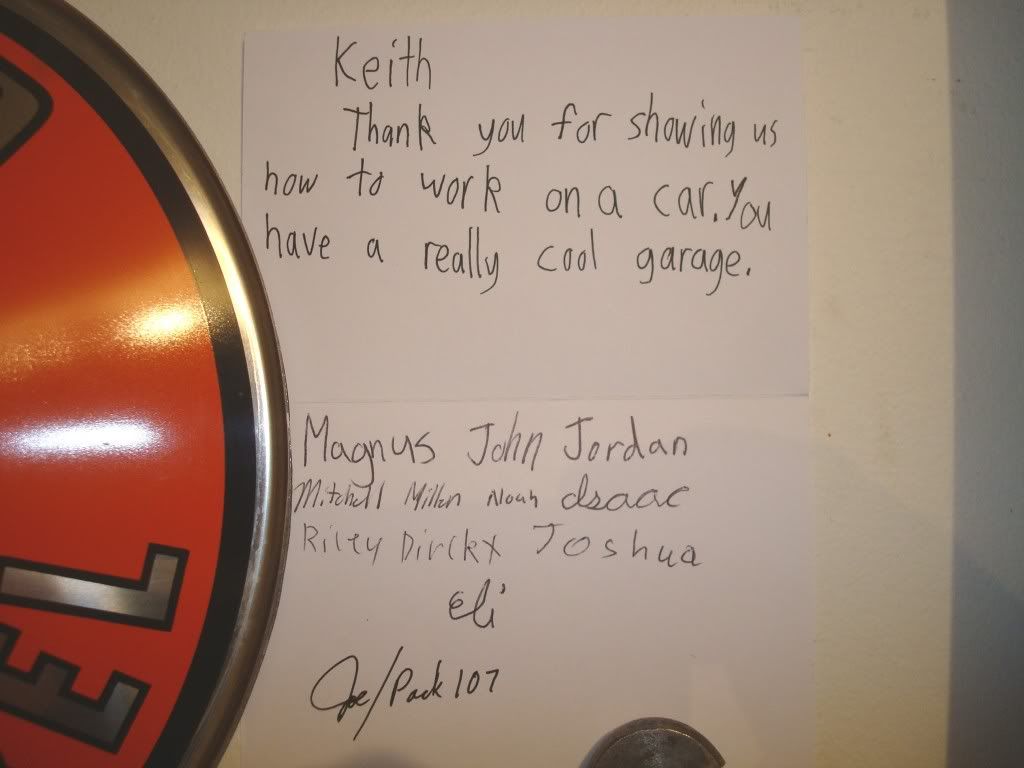 Keith
Thank you for showing us
how to work on a car. You
have a really cool garage.
Magnus John Jordan
Mitchell Millen Noah Isaac
Riley Dirckx Joshua
Eli
Joe/Pack 107